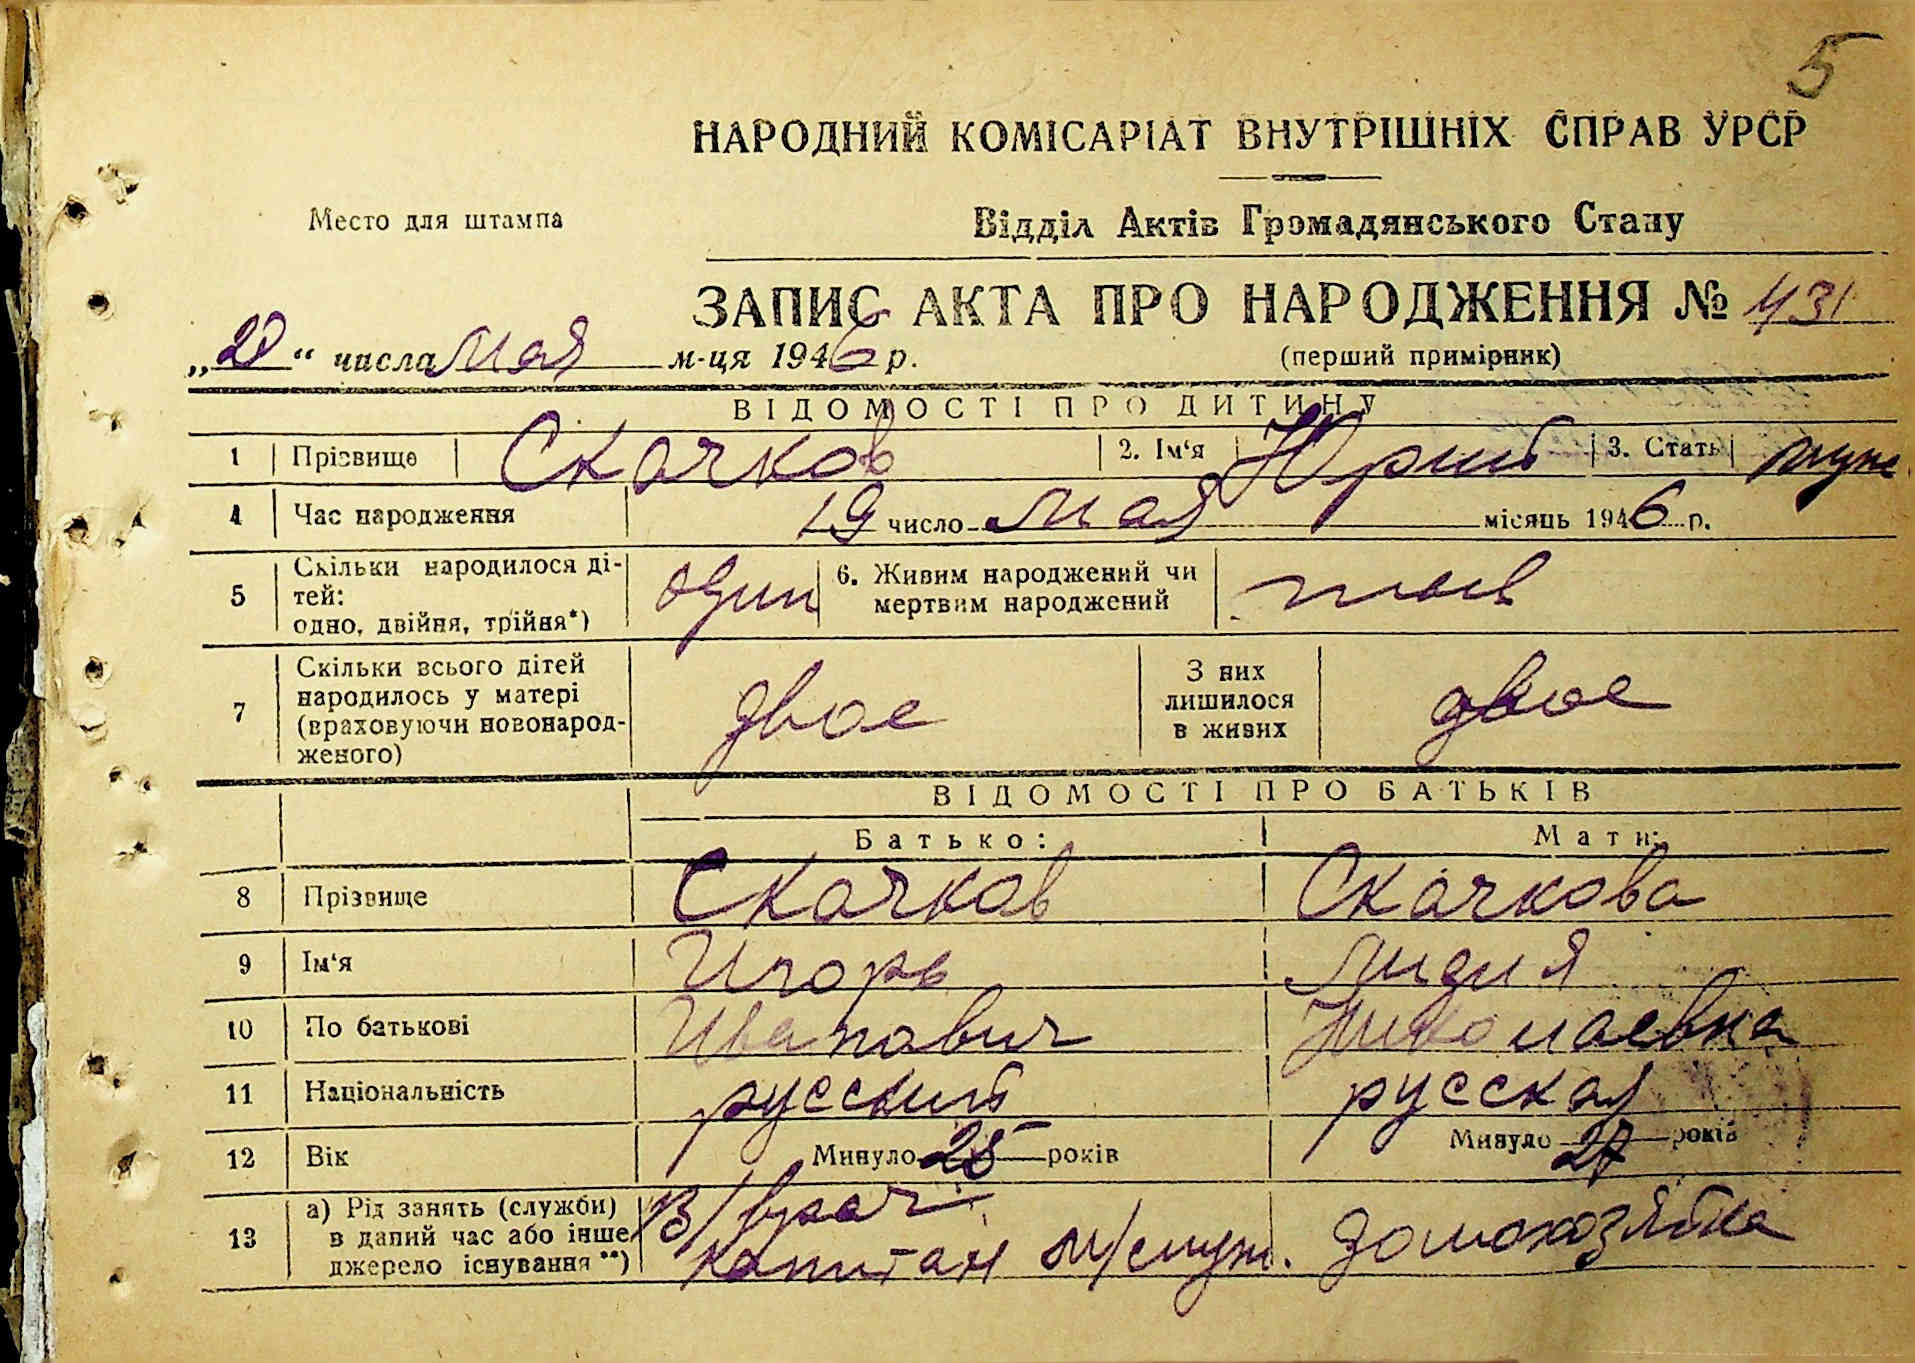 5
НАРОДНИЙ КОМІСАРІАТ ВНУТРІШНІХ СПРАВ УРСР
Место для штампа
Відділ Актів Громадянського Стану
ЗАПИС АКТА ПРО НАРОДЖЕННЯ № 431
„20“ числа Мая м-ця 1946 р.
(перший примірник)
ВІДОМОСТІ ПРО ДИТИНУ
1 Прізвище Скачков 2. Ім‘я Юрий 3. Стать муж
4 Час народження 19 число мая місяць 1946 р.
5 Скільки народилося ді-
тей:
одно, двійня, трійня*) один 6. Живим народжений чи
мертвим народжений
7 Скільки всього дітей
народилось у матері
(враховуючи новонарод-
женого) двое З них
лишилося
в живих двое
ВІДОМОСТІ ПРО БАТЬКІВ
Батько: Мати:
8 Прізвище Скачков Скачкова
9 Ім‘я Игорь Лидия
10 По батькові Иванович Николаевна
11 Національність русский русская
12 Вік Минуло 25 років Минуло 27 років
13 а) Рід занять (служби)
в даний час або інше
джерело існування **) В/врач
капитан м/служ. домохозяйка